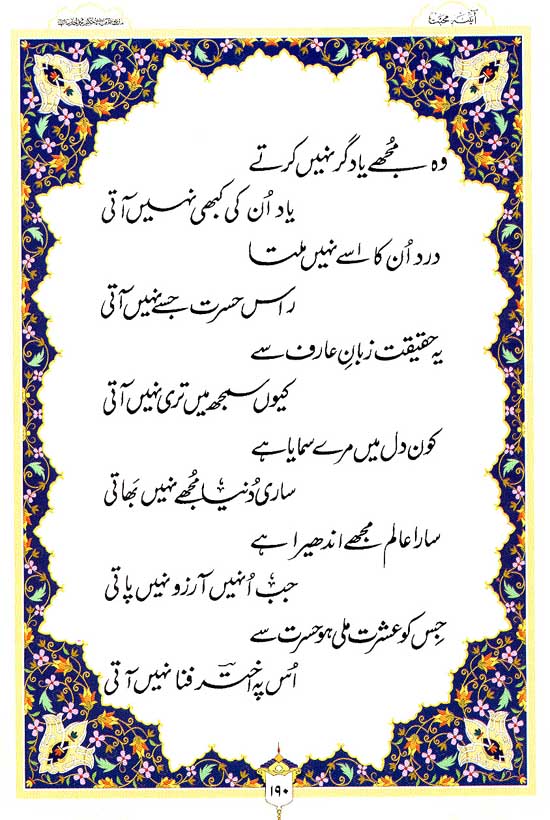 آئینۂ محبت
وہ مجُھے یاد گر نہیں کرتے
یاد اُن کی کبھی نہیں آتی
درد اُن کا اسے نہیں ملتا
راس حسرت جسے نہیں آتی
یہ حقیقت زبانِ عارف سے
کیوں سمجھ میں تری نہیں آتی
کون دل میں مرے سمایا ہے
ساری دُنیا مجُھے نہیں بَھاتی
سارا عالم مجھے اندھیرا ہے
جب اُنہیں آرزو نہیں پاتی
جِس کو عشرت ملی ہو حسرت سے
اُس پہ اختر فنا نہیں آتی
۱۹۰